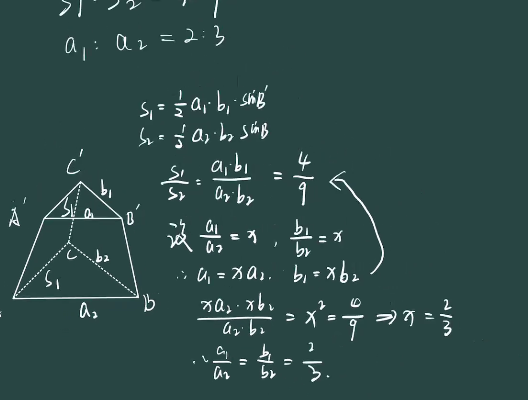 a₁ : a₂ = 2:3
S₁ = 1/2 a₁·b₁·sinB'
S₂ = 1/2 a₂·b₂ sinB
S₁/S₂ = a₁·b₁/a₂·b₂ = 4/9
设 a₁/a₂ = x , b₁/b₂ = x
∴ a₁ = xa₂. b₁ = xb₂
xa₂·xb₂/a₂·b₂ = x² = 4/9 ⇒ x = 2/3
∴ a₁/a₂ = b₁/b₂ = 2/3.
C'
b₁
A' S₁ a₁ B'
C b₂
S₁
B
a₂